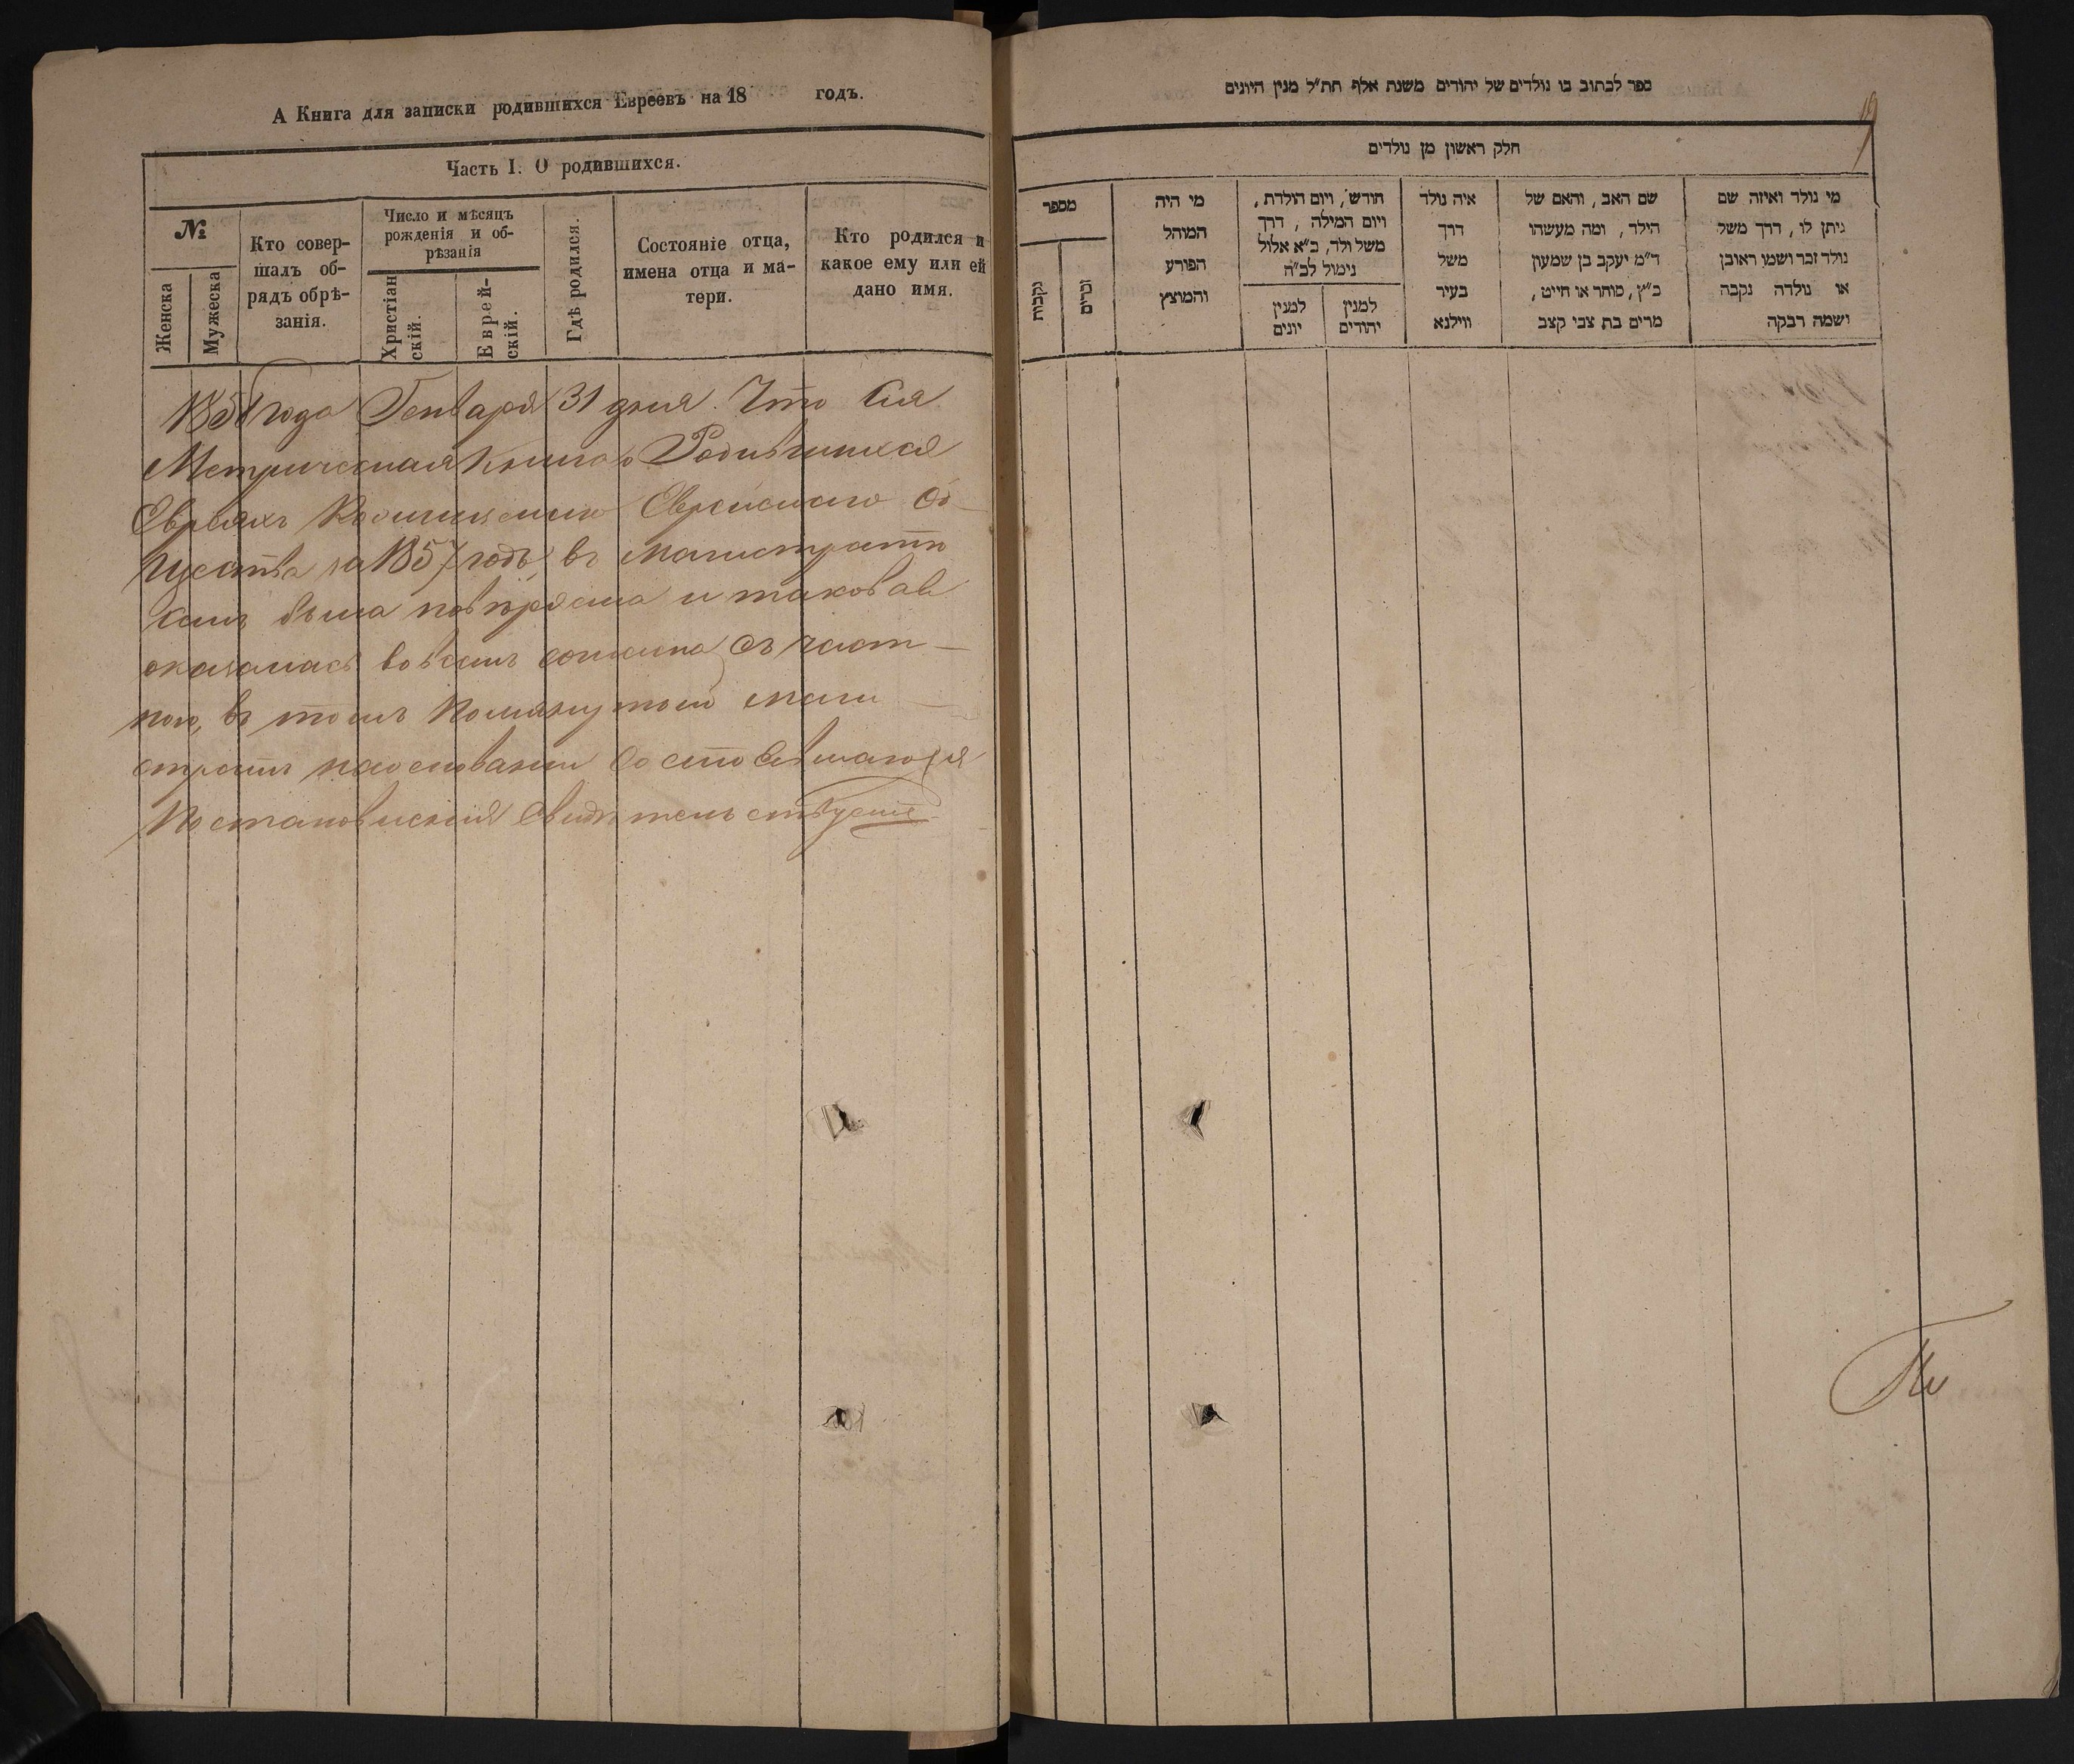 А Книга для записки родившихся Евреевъ на 18 годъ.
Часть I. О родившихся.
№
Женска
Мужеска
Кто совер-
шалъ об-
рядъ обрѣ-
занія.
Число и мѣсяцъ
рожденія и об-
рѣзанія
Христіан
скій.
Еврей-
скій.
Гдѣ родился.
Состояніе отца,
имена отца и ма-
тери.
Кто родился и
какое ему или ей
дано имя.
1858 года Генваря 31 дня. Что сія
Метрическая книга о Родившихся
Евреяхъ Еврейскаго Об-
щества за 1857 годъ, въ Магистратѣ
семъ была повѣряема и таковая
оказалась во всемъ согласна съ част-
ною, въ томъ Маги-
стратъ на основаніи состоявшагося
Постановленія свидѣтельствуетъ
ספר לכתוב בו נולדים של יהודים משנת אלף תת״ל מנין היונים
19
חלק ראשון מן נולדים
מספר
נקבות
זכרים
מי היה
המוהל
הפורע
והמוצץ
חודש, ויום הולדת,
ויום המילה, דרך
משל ולד, כ״א אלול
נימול לכ״ה
למנין
יונים
למנין
יהודים
איה נולד
דרך
משל
בעיר
ווילנא
שם האב, והאם של
הילד, ומה מעשהו
ד״מ יעקב בן שמעון
כ״ץ, סוחר או חייט,
מרים בת צבי קצב
מי נולד ואיזה שם
ניתן לו, דרך משל
נולד זכר ושמו ראובן
או נולדה נקבה
ושמה רבקה